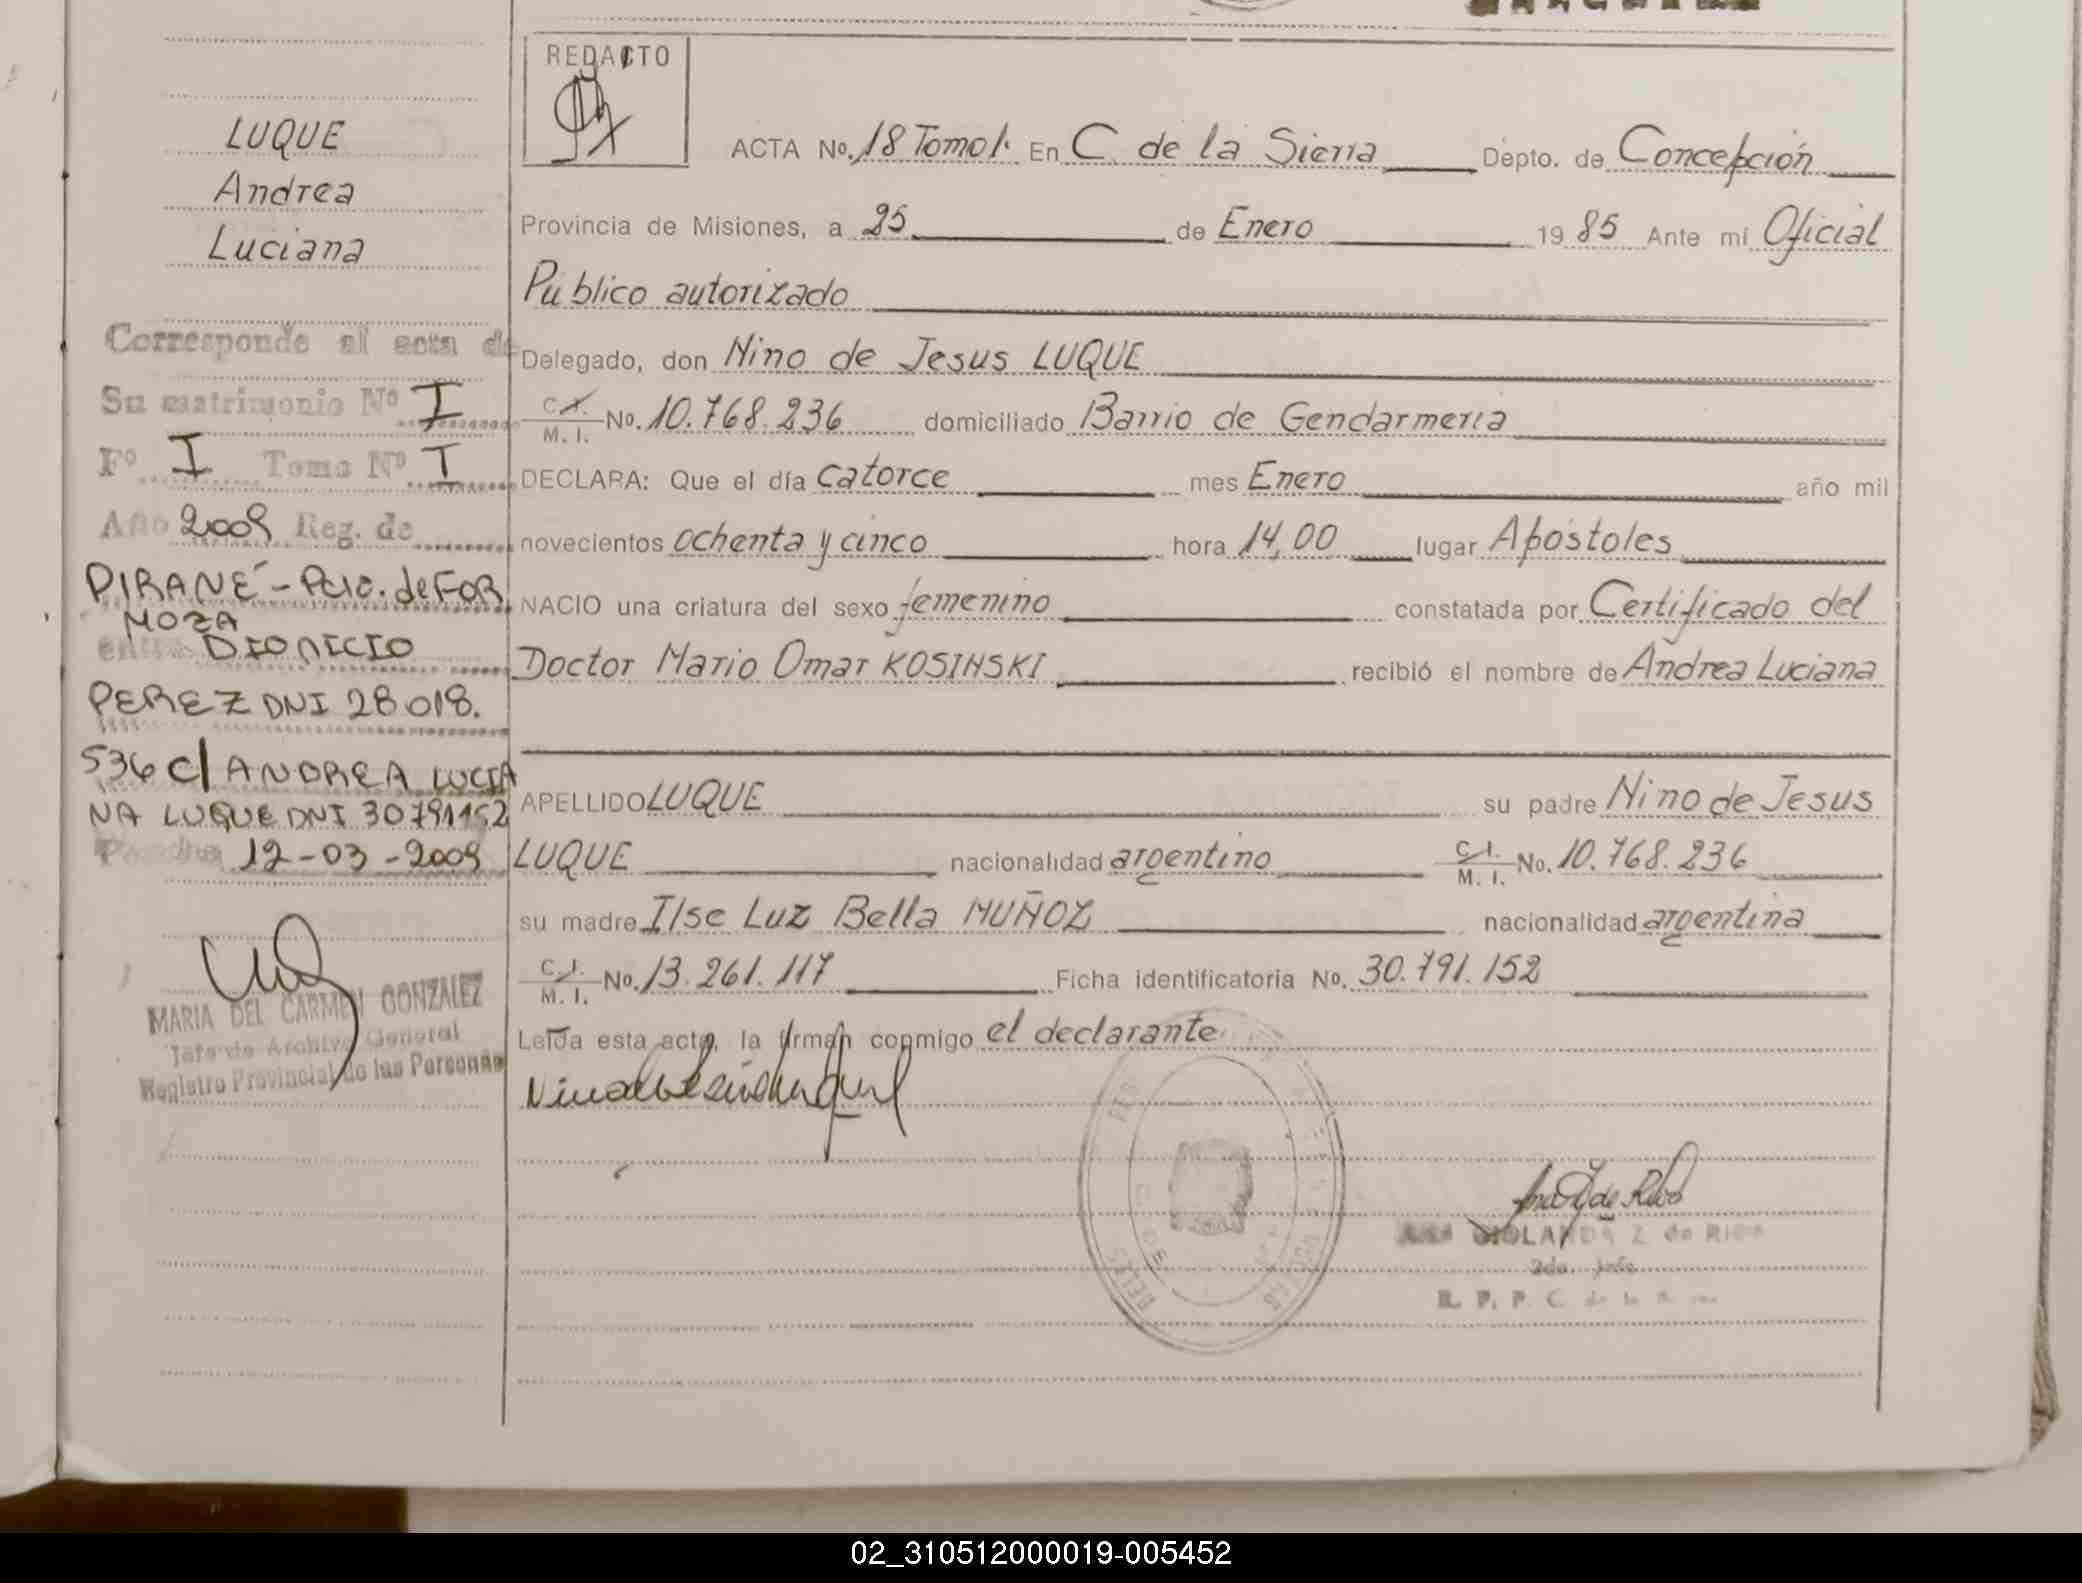 LUQUE
Andrea
Luciana
Corresponde al acta de
Su matrimonio Nº I
Fº I Tomo Nº I
Año 2009 Reg. de
PIRANÉ - Pcia. de FOR
MOZA
entre DIONICIO
PEREZ DNI 28018.
536 c/ ANDREA LUCIA
NA LUQUE DNI 30791152
12-03-2009
MARIA DEL CARMEN GONZALEZ
Jefe de Archivo General
Registro Provincial de las Personas
REDACTO
ACTA No. 18 Tomo 1. En C. de la Sierra Depto. de Concepción
Provincia de Misiones, a 25 de Enero 1985 Ante mí Oficial
Publico autorizado
Delegado, don Nino de Jesus LUQUE
C. I. / M. I. No. 10.768.236 domiciliado Barrio de Gendarmeria
DECLARA: Que el día catorce mes Enero año mil
novecientos ochenta y cinco hora 14,00 lugar Apóstoles
NACIO una criatura del sexo femenino constatada por Certificado del
Doctor Mario Omar KOSINSKI recibió el nombre de Andrea Luciana
APELLIDO LUQUE su padre Nino de Jesus
LUQUE nacionalidad argentino C. I. / M. I. No. 10.768.236
su madre Ilse Luz Bella MUÑOZ nacionalidad argentina
C. I. / M. I. No. 13.261.117 Ficha identificatoria No. 30.791.152
Leída esta acta, la firman conmigo el declarante
Nino de Jesús Luque
Z de RIOS
2do. Jefe
R. P. P. C. de la
02_310512000019-005452